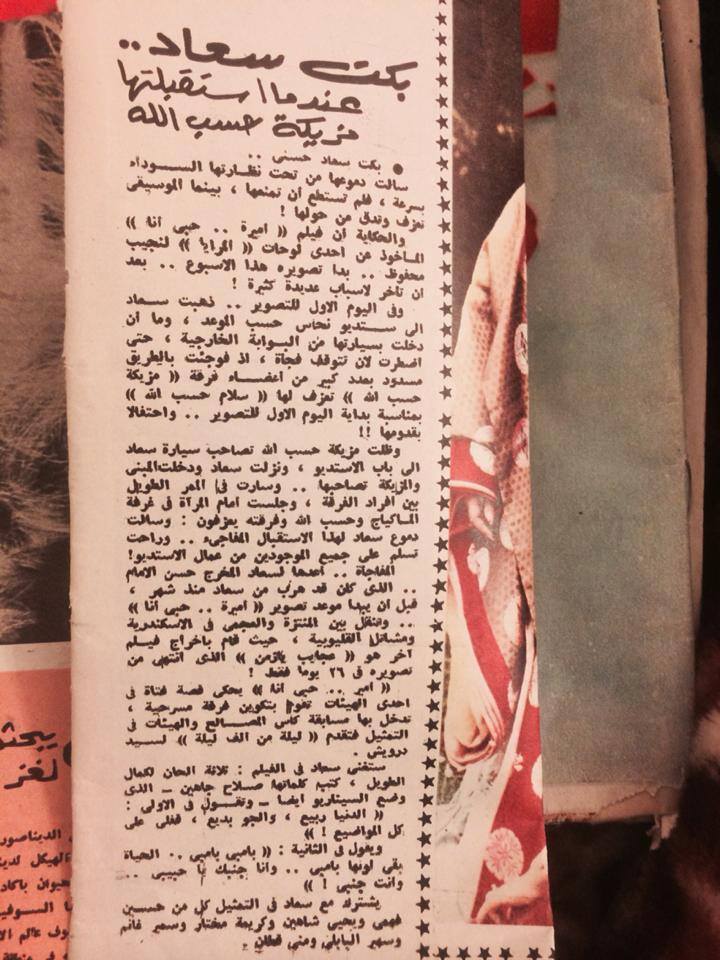 بكت سعاد..
عندما استقبلتها
مزيكة حسب الله
● بكت سعاد حسنى ..
سالت دموعها من تحت نظارتها السوداء
بسرعة ، فلم تستطع أن تمنعها ، بينما الموسيقى
تعزف وتدق من حولها !
والحكاية أن فيلم (( اميرة .. حبى أنا ))
المأخوذ عن احدى لوحات (( المرايا )) لنجيب
محفوظ .. بدا تصويره هذا الاسبوع .. بعد
أن تأخر لاسباب عديدة كثيرة !
وفى اليوم الاول للتصوير .. ذهبت سعاد
الى ستديو نحاس حسب الموعد ، وما أن
دخلت بسيارتها من البوابة الخارجية ، حتى
اضطرت لان تتوقف فجأة ، اذ فوجئت بالطريق
مسدود بعدد كبير من أعضاء فرقة (( مزيكة
حسب الله )) تعزف لها (( سلام حسب الله ))
بمناسبة بداية اليوم الاول للتصوير .. واحتفالا
بقدومها !!
وظلت مزيكة حسب الله تصاحب سيارة سعاد
الى باب الاستديو ، ونزلت سعاد ودخلت المبنى
والمزيكة تصاحبها .. وسارت فى الممر الطويل
بين أفراد الفرقة ، وجلست أمام المرآة فى غرفة
الماكياج وحسب الله وفرقته يعزفون : وسالت
دموع سعاد لهذا الاستقبال المفاجىء .. وراحت
تسلم على جميع الموجودين من عمال الاستديو!
المفاجأة .. أعدها لسعاد المخرج حسن الامام
.. الذى كان قد هرب من سعاد منذ شهر ،
قبل أن يبدا موعد تصوير (( اميرة .. حبى أنا ))
.. وتنقل بين المنتزة والعجمى فى الاسكندرية
ومشاتل القليوبية ، حيث قام باخراج فيلم
آخر هو (( عجايب يازمن )) الذى انتهى من
تصويره فى ٢٦ يوما فقط !
(( امير .. حبى أنا )) يحكى قصة فتاة فى
احدى الهيئات تقوم بتكوين فرقة مسرحية ،
تدخل بها مسابقة كأس المصالح والهيئات فى
التمثيل فتقدم (( ليلة من الف ليلة )) لسيد
درويش .
ستغنى سعاد فى الفيلم : ثلاثة الحان لكمال
الطويل ، كتب كلماتها صلاح جاهين ــ الذى
وضع السيناريو أيضا ــ وتقول فى الاولى :
(( الدنيا ربيع ، والجو بديع ، قفلى على
كل المواضيع ! ))
ويقول فى الثانية : (( بامبى بامبى .. الحياة
بقى لونها بامبى .. وأنا جنبك يا حبيبى ..
وأنت جنبى ! ))
يشترك مع سعاد فى التمثيل كل من حسين
فهمى ويحيى شاهين وكريمة مختار وسمير غانم
وسهير البابلى ومنى قطان .
يبحثو
لغز
الديناصور
الهيكل لدين
السوفي